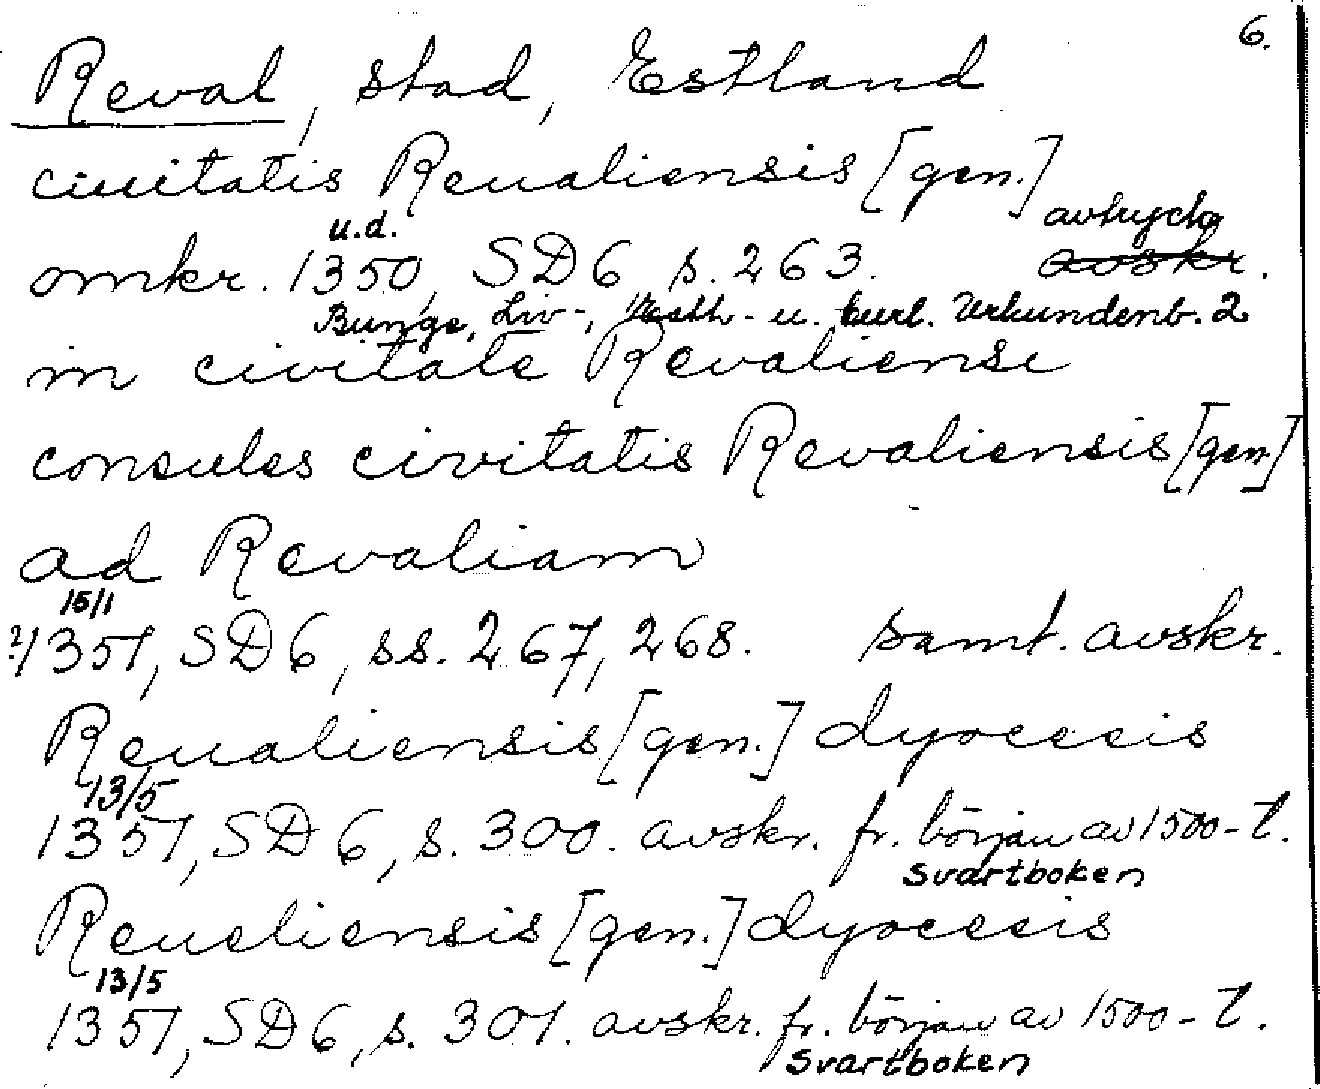 6.
Reval, stad, Estland
ciuitatis Reualiensis [gen.]
u.d. avtryck
omkr. 1350, SD6 s. 263. avskr.
Bunge, Liv-, Esth- u. Curl. Urkundenb. 2
in civitate Revaliensi
consules civitatis Revaliensis [gen]
ad Revaliam
15/1
?/1351, SD6, ss. 267, 268. samt. avskr.
Reualiensis [gen.] dyocesis
13/5
1351, SD6, s. 300. avskr. fr. början av 1500-t.
Svartboken
Reueliensis [gen.] dyocesis
13/5
1351, SD6, s. 301. avskr. fr. början av 1500-t.
Svartboken